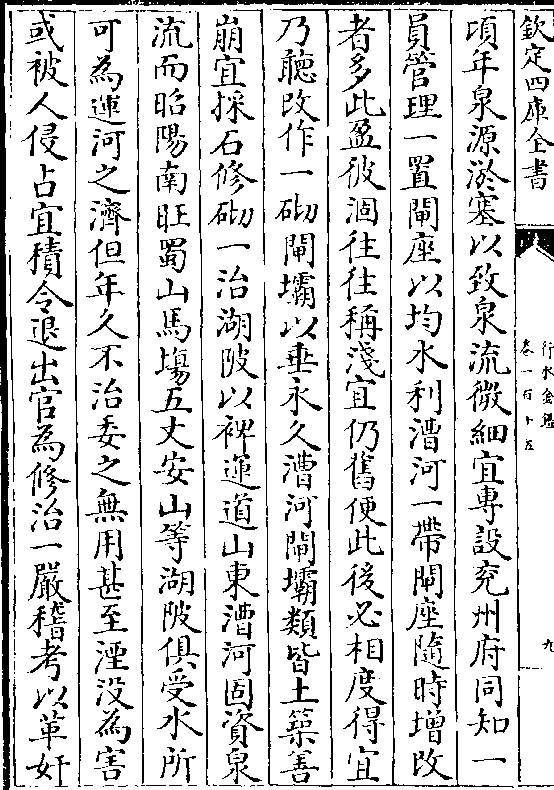 欽定四庫全書
行水金鑑
卷一百十五
九
項年泉源淤塞以致泉流微細宜專設兖州府同知一
員管理一置閘座以均水利漕河一帶閘座隨時增改
者多此盈彼涸往往稱淺宜仍舊便此後必相度得宜
乃聽改作一砌閘壩以垂永久漕河閘壩類皆土築善
崩宜採石修砌一治湖陂以裨運道山東漕河固資泉
流而昭陽南旺蜀山馬塲五丈安山等湖陂俱受水所
可為運河之濟但年久不治委之無用甚至湮没為害
或被人侵占宜積令退出官為修治一嚴稽考以革奸